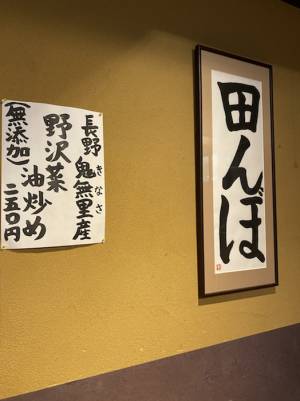 田んぼ
長野鬼無里産
きなさ
野沢菜
油炒め
(無添加)二五〇円